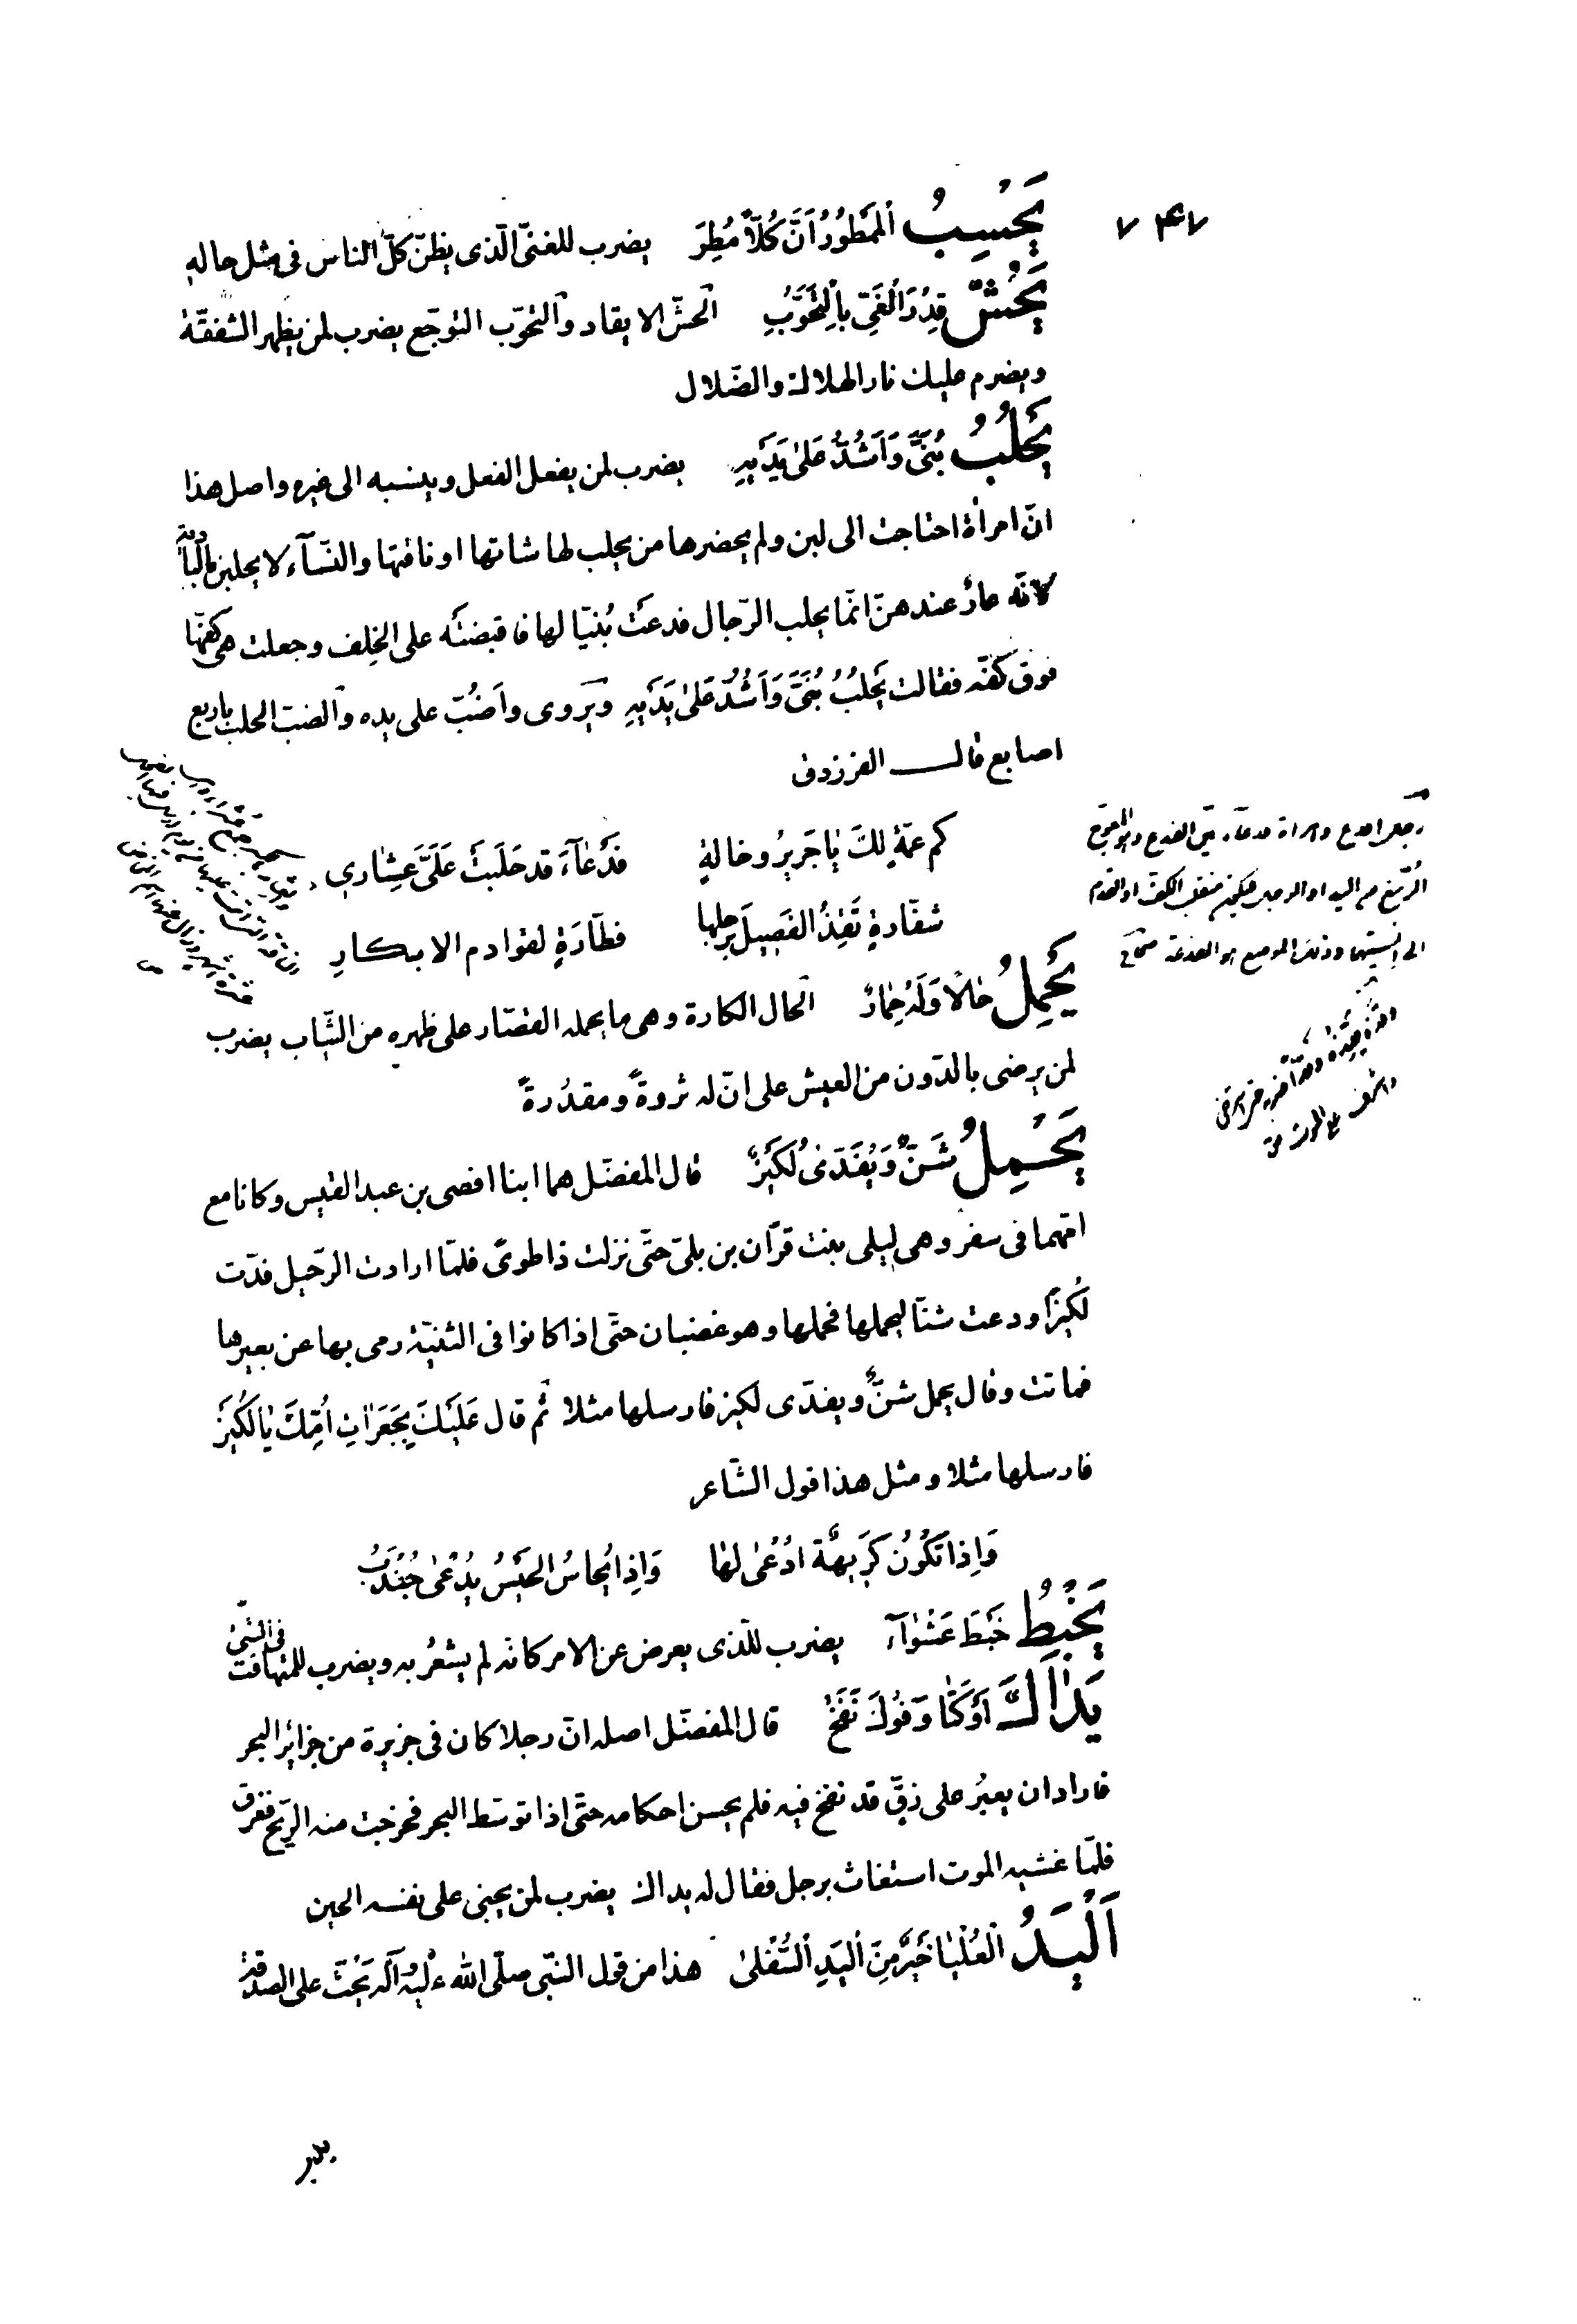 ۷۴۷
يَحْسِبُ الْمَمْطُورُ اَنَّ كُلًّا مُطِرَ يضرب للغنىّ الّذى يظنّ كلّ الناس فى مثل حاله
يَحُشُّ قِدْرَ الْغَىِّ بِالتَّحَوُّبِ الحشّ الايقاد والتحوّب التوجّع يضرب لمن يظهر الشفقة
ويضرم عليك نار الهلاك والضّلال
يَحْلُبُ بُنَىَّ وَاَشُدُّ عَلىٰ يَدَيْهِ يضرب لمن يفعل الفعل وينسبه الى غيره واصل هذا
انّ امراة احتاجت الى لبن ولم يحضرها من يحلب لها شاتها او ناقتها والنّسآء لا يحلبن بالبادية
لانّه عارٌ عندهنّ انّما يحلب الرّجال فدعت بُنيّا لها فاقبضته على الخِلف وجعلت هى كفّها
فوق كفّه فقالت يَحْلُبُ بُنَىَّ وَاَشُدُّ عَلىٰ يَدَيْهِ ويُروى واَضُبّ على يده والضبّ الحلب باربع
اصابع قال الفرزدق
كم عمّةٍ لكَ يٰا جَرِيرُ وخالةٍ فَدْعٰآءَ قد حَلَبَتْ عَلَىَّ عِشٰارى
شغّارةٍ تَقِذُ الفَصِيلَ برجلها فطّارَةٍ لقوادم الابكارِ
يَحْمِلُ حٰالًا وَلَهُ حِمٰارٌ الحال الكارة وهى ما يحمله القصّار على ظهره من الثّياب يضرب
لمن يرضى بالدّون من العيش على انّ له ثروةً ومقدُرةً
يَحْمِلُ شَنٌّ وَيُفَدّىٰ لُكَيْزٌ قال المفضّل هما ابنا افصى بن عبد القيس وكانا مع
امّهما فى سفر وهى ليلى بنت قرّان بن بلىّ حتّى نزلت ذا طوىً فلمّا ارادت الرّحيل فدّت
لُكيزًا ودعت شنّا ليحملها فحملها وهو غضبان حتّى اذا كانوا فى الثنيّة رمى بها عن بعيرها
فماتت وقال يحمل شنٌّ ويفدّى لكيز فارسلها مثلا ثم قال عَلَيْكَ بِجَعَرٰاتِ اُمِّكَ يٰا لُكَيْزُ
فارسلها مثلا ومثل هذا قول الشّاعر
وَاِذٰا تَكُونُ كَرِيهةٌ اُدْعٰى لهٰا وَاِذٰا يُحٰاسُ الحَيْسُ يُدْعٰى جُنْدَبُ
يَخْبِطُ خَبْطَ عَشْوٰآءَ يضرب للّذى يعرض عن الامر كانّه لم يشعُر به ويضرب للمتهافت فى الشئ
يَدٰاكَ اَوْكَتٰا وَفُوكَ نَفَخَ قال المفضّل اصله انّ رجلا كان فى جزيرة من جزائر البحر
فاراد ان يعبُر على زقّ قد نفخ فيه فلم يحسن احكامه حتّى اذا توسّط البحر فخرجت منه الرّيح فغرق
فلمّا غشيه الموت استغاث برجل فقال له يداك يضرب لمن يجنى على نفسه الحين
اَلْيَدُ الْعُلْيٰا خَيْرٌ مِنَ الْيَدِ السُّفْلىٰ هذا من قول النبّى صلّى الله عليه وآله يَحُثّ على الصدقة
رجل افدع وامراة فدعآء بيّن الفدع وهو المعوّج
الرّسغ من اليد او الرجل فيكون منقلب الكفّ او القدم
الى انسيّهما وذلك الموضع هو الفدعة صحاح